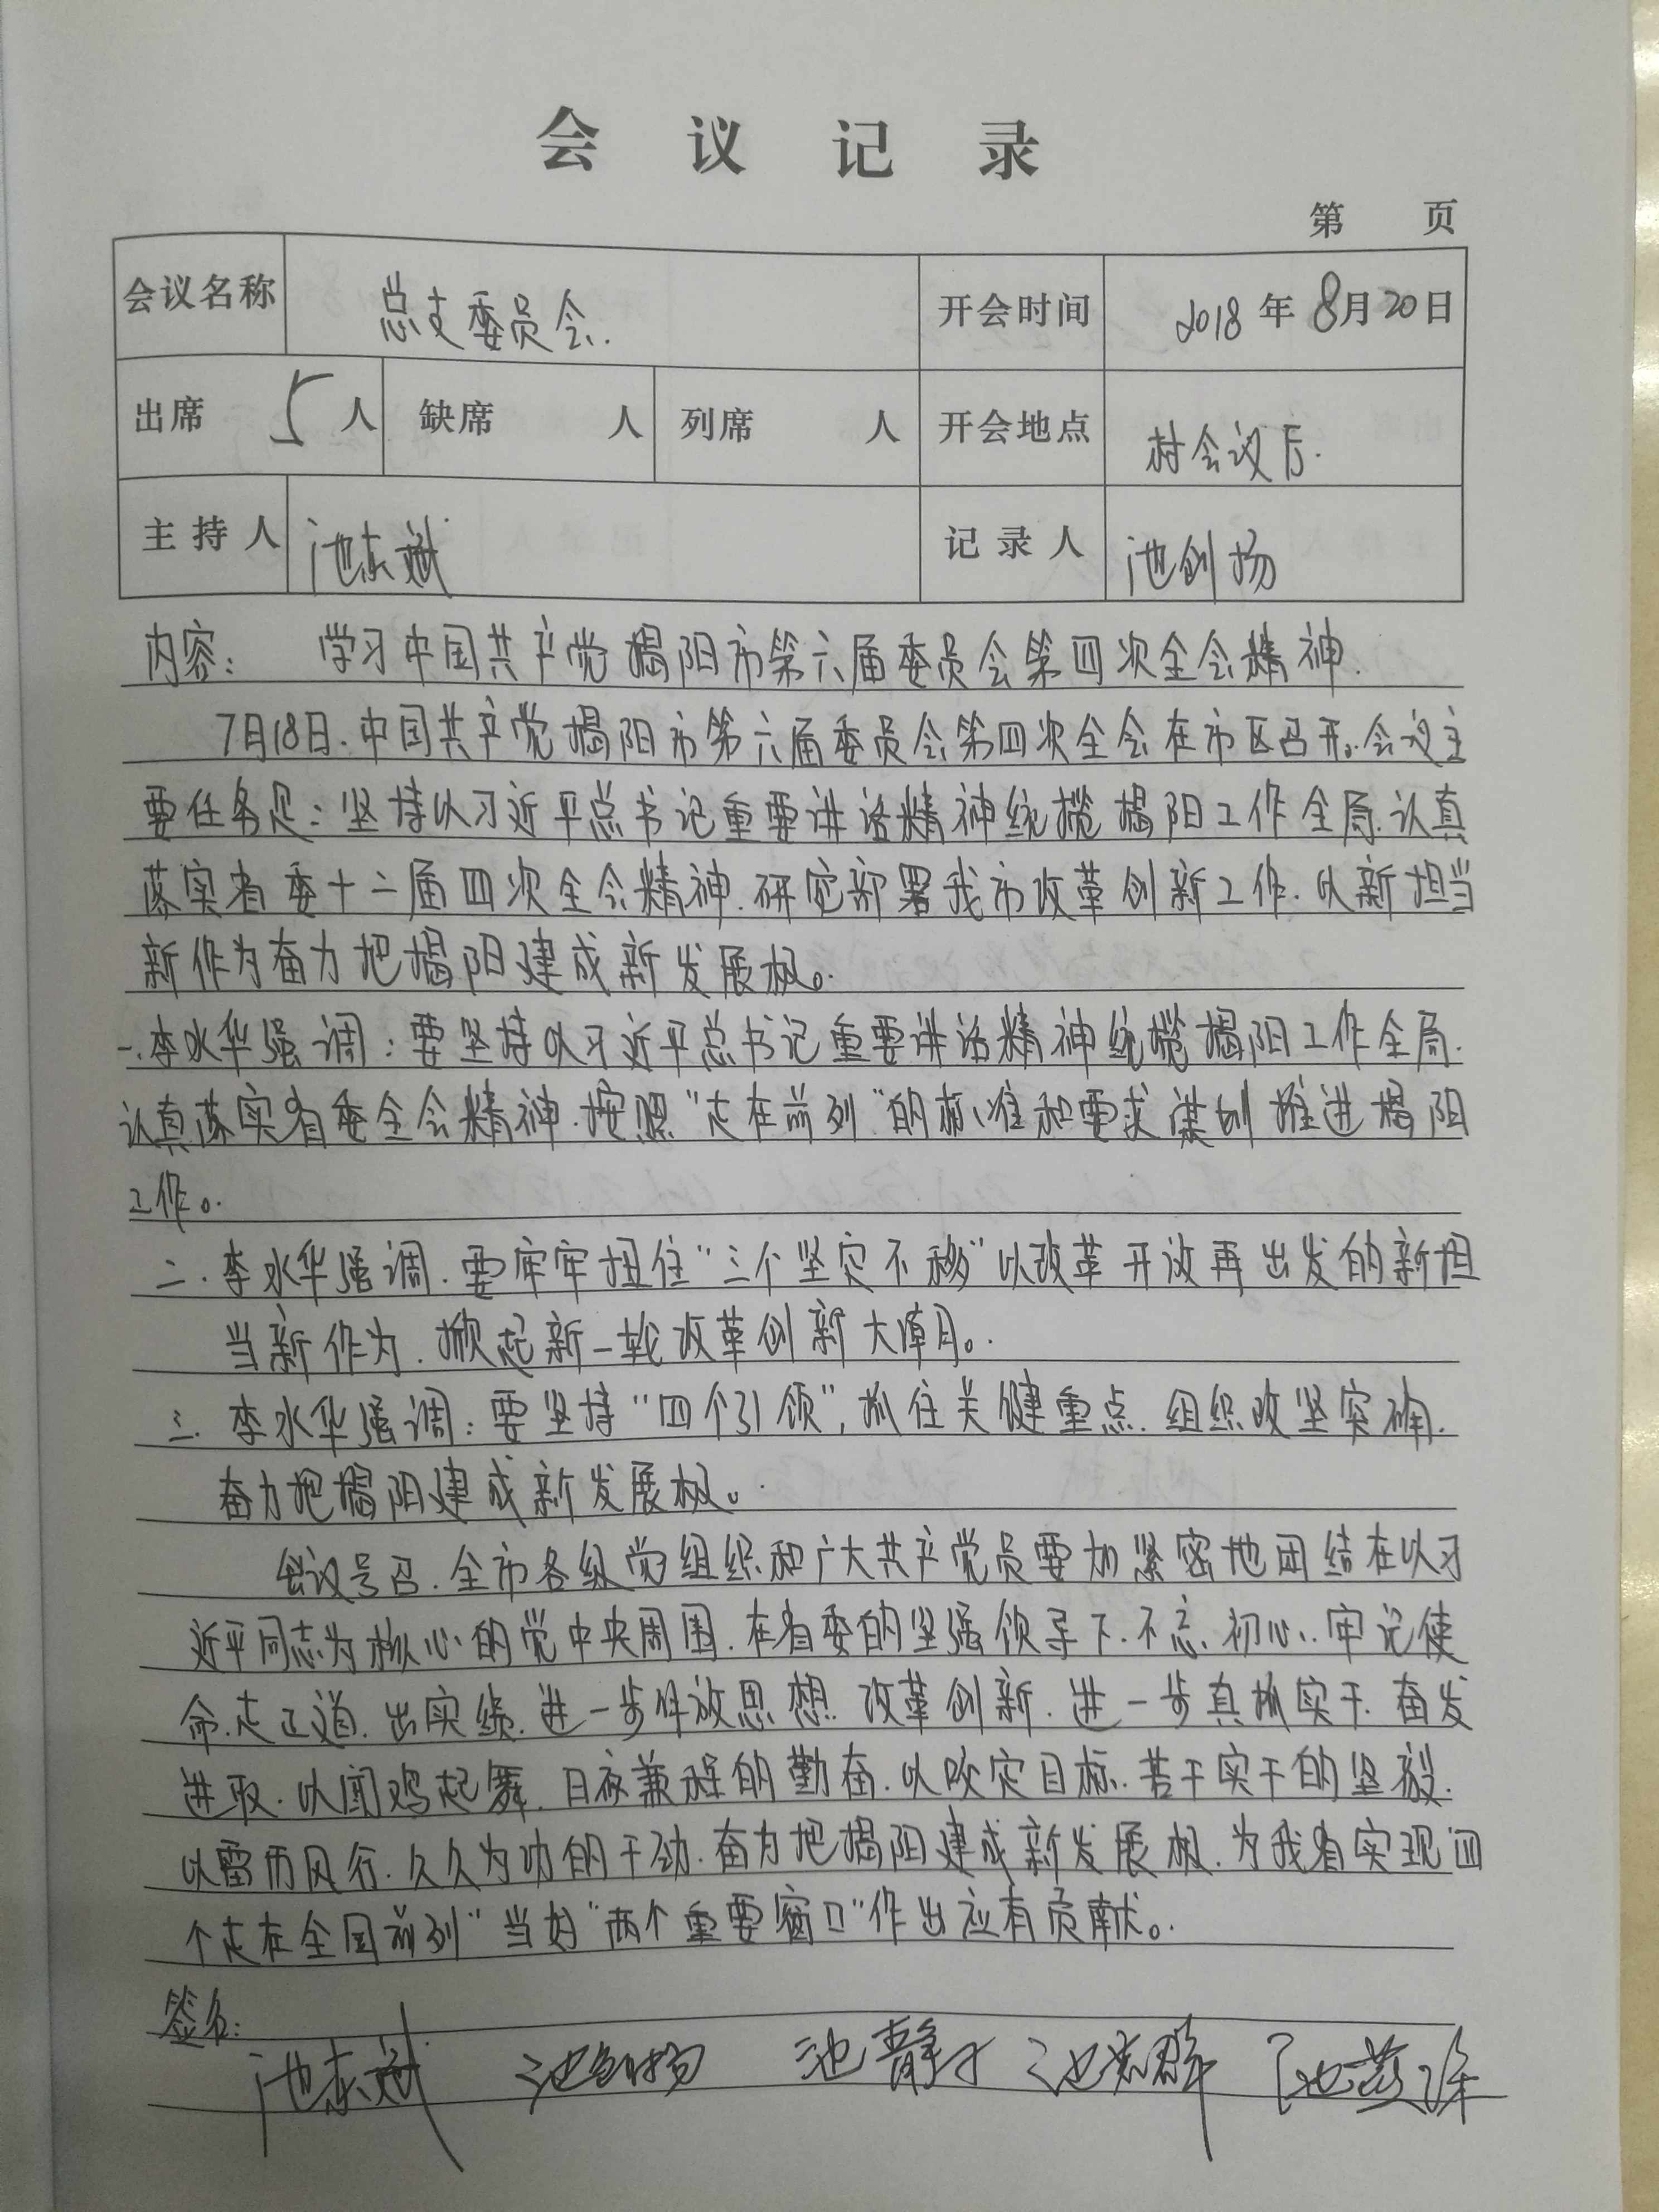 会议记录
第 页
会议名称 总支委员会. 开会时间 2018年8月20日
出席 5人 缺席 人 列席 人 开会地点 村会议厅.
主持人 池东斌 记录人 池创扬
内容: 学习中国共产党揭阳市第六届委员会第四次全会精神.
7月18日.中国共产党揭阳市第六届委员会第四次全会在市区召开。会议主
要任务是:坚持以习近平总书记重要讲话精神统揽揭阳工作全局.认真
落实省委十二届四次全会精神.研究部署我市改革创新工作.以新担当
新作为奋力把揭阳建成新发展极。
一.李水华强调:要坚持以习近平总书记重要讲话精神统揽揭阳工作全局.
认真落实省委全会精神.按照“走在前列”的标准和要求谋划推进揭阳
工作。
二.李水华强调.要牢牢扭住“三个坚定不移”以改革开放再出发的新担
当新作为.掀起新一轮改革创新大潮。
三.李水华强调:要坚持“四个引领”,抓住关健重点.组织攻坚突破.
奋力把揭阳建成新发展极。
会议号召.全市各级党组织和广大共产党员要加紧密地团结在以习
近平同志为核心的党中央周围.在省委的坚强领导下.不忘初心.牢记使
命.走正道.出实绩.进一步解放思想.改革创新.进一步真抓实干.奋发
进取.以闻鸡起舞.日夜兼程的勤奋.以咬定目标.苦干实干的坚毅.
以雷而风行.久久为功的干劲.奋力把揭阳建成新发展极.为我省实现四
个走在全国前列”当好“两个重要窗口”作出应有贡献。
签名:
池东斌 池创扬 池静